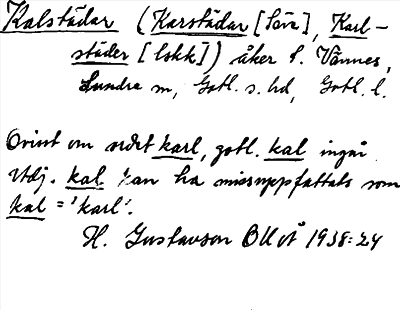 Kalstädar (Karstädar [Säve], Karl-
städer [lokk]) åker f. Vännes,
Sundre sn, Gotl. s. hd, Gotl. l.
Ovisst om ordet karl, gotl. kal ingår
Adj. kal kan ha missuppfattats som
kal = 'karl'.
H. Gustavson 1938:24